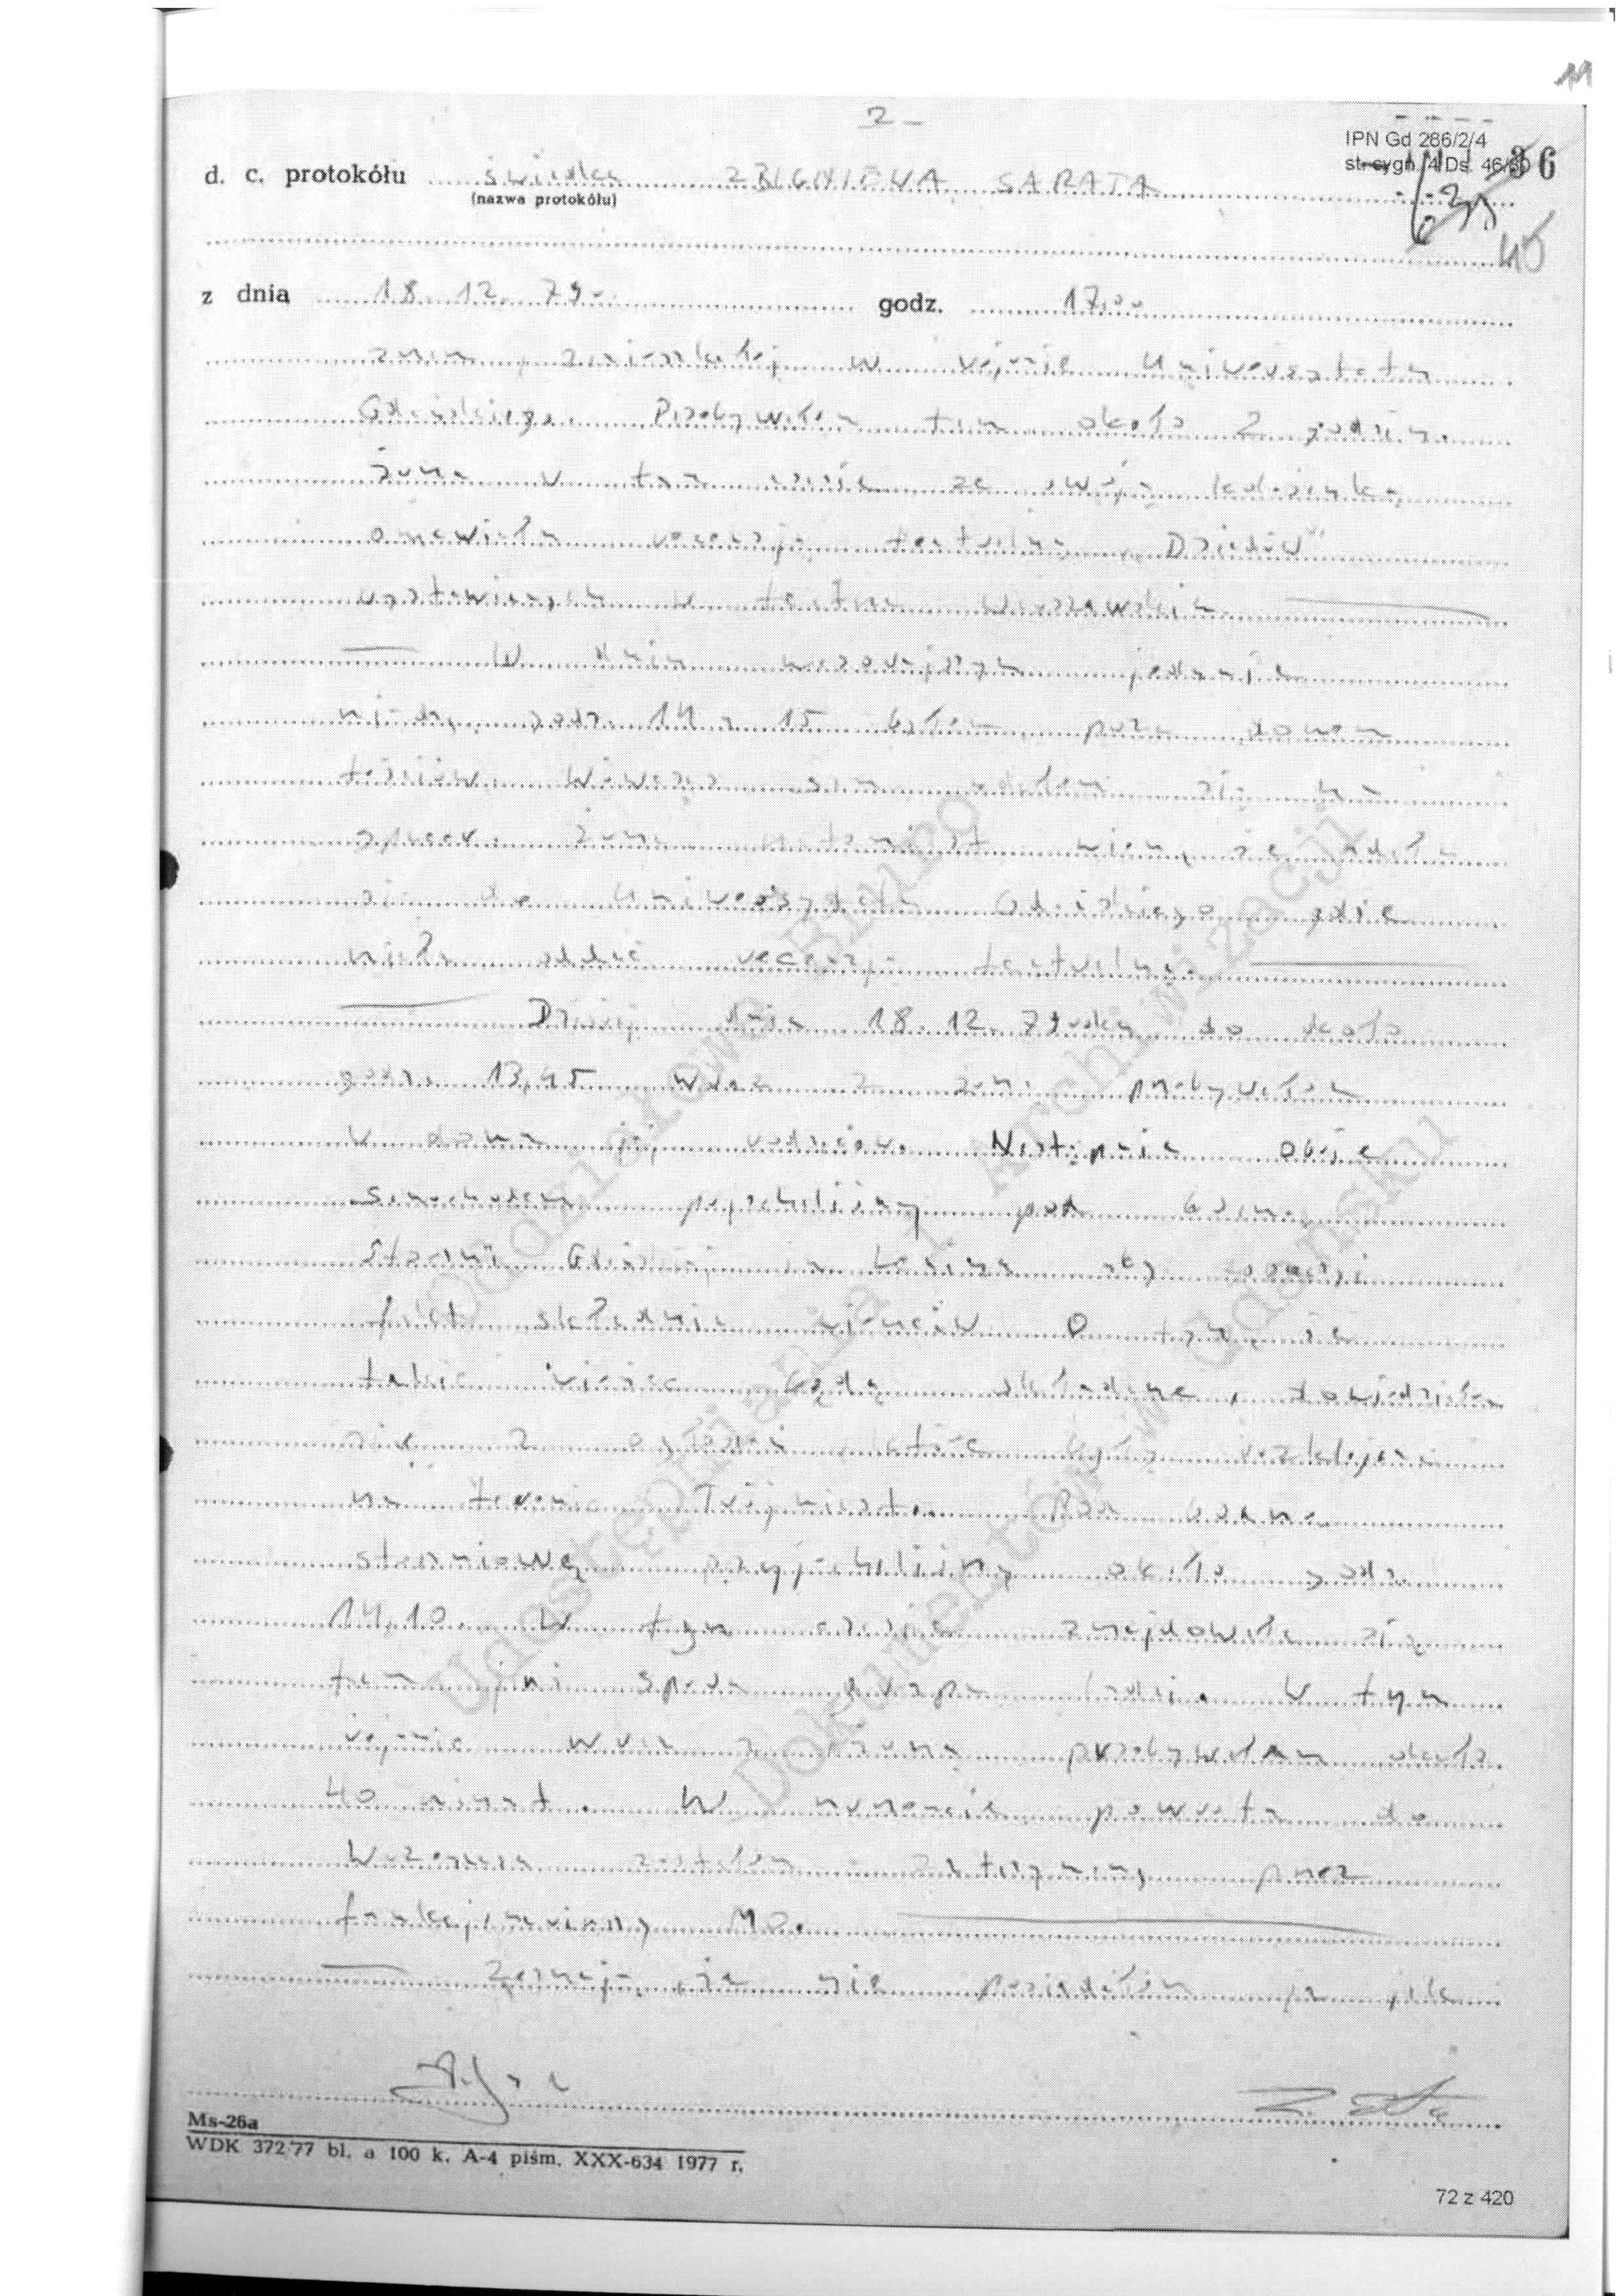 11
2 -
IPN Gd 286/2/4
st. sygn. 4 Ds. 46/80
36
d. c. protokółu świadka ZBIGNIEWA SARATA
(nazwa protokółu)
45
z dnia 18.12.79r. godz. 17.00
zam. zamieszkałej w rejonie Uniwersytetu
Gdańskiego. Przebywałem tam około 2 godzin.
Żona w tym czasie ze swoją koleżanką
omawiała recenzję teatralną „Dziadów"
wystawianych w teatrze Warszawskim.
— W dniu wczorajszym jedynie
między godz. 14 a 15 byłem poza domem
teściów. Wówczas sam udałem się na
spacer. Żona natomiast wiem, że udała
się do Uniwersytetu Gdańskiego gdzie
miała oddać recenzję teatralną.
— Dzisiaj dnia 18.12.79 roku do około
godz. 13,45 wraz z żoną przebywałem
w domu jej rodziców. Następnie oboje
samochodem pojechaliśmy pod bramę
Stoczni Gdańskiej im Lenina aby
fakt składania wieńców. O tym, że
takie wieńce będą składane, dowiedziałem
się z ogłoszeń które były rozklejane
na terenie Trójmiasta. Pod bramę
stoczniową przyjechaliśmy około godz.
14,10. W tym czasie znajdowała się
tam już spora grupa ludzi. W tym
rejonie wraz z żoną przebywałem około
40 minut. W momencie powrotu do
Wrzeszcza zostałem zatrzymany przez
funkcjonariuszy MO.
— Zeznaję, że nie posiadałem ja jak i
Ms-26a
WDK 372/77 bl. a 100 k. A-4 piśm. XXX-634 1977 r.
72 z 420
Oddziałowe Biuro
Udostępniania i Archiwizacji
Dokumentów w Gdańsku